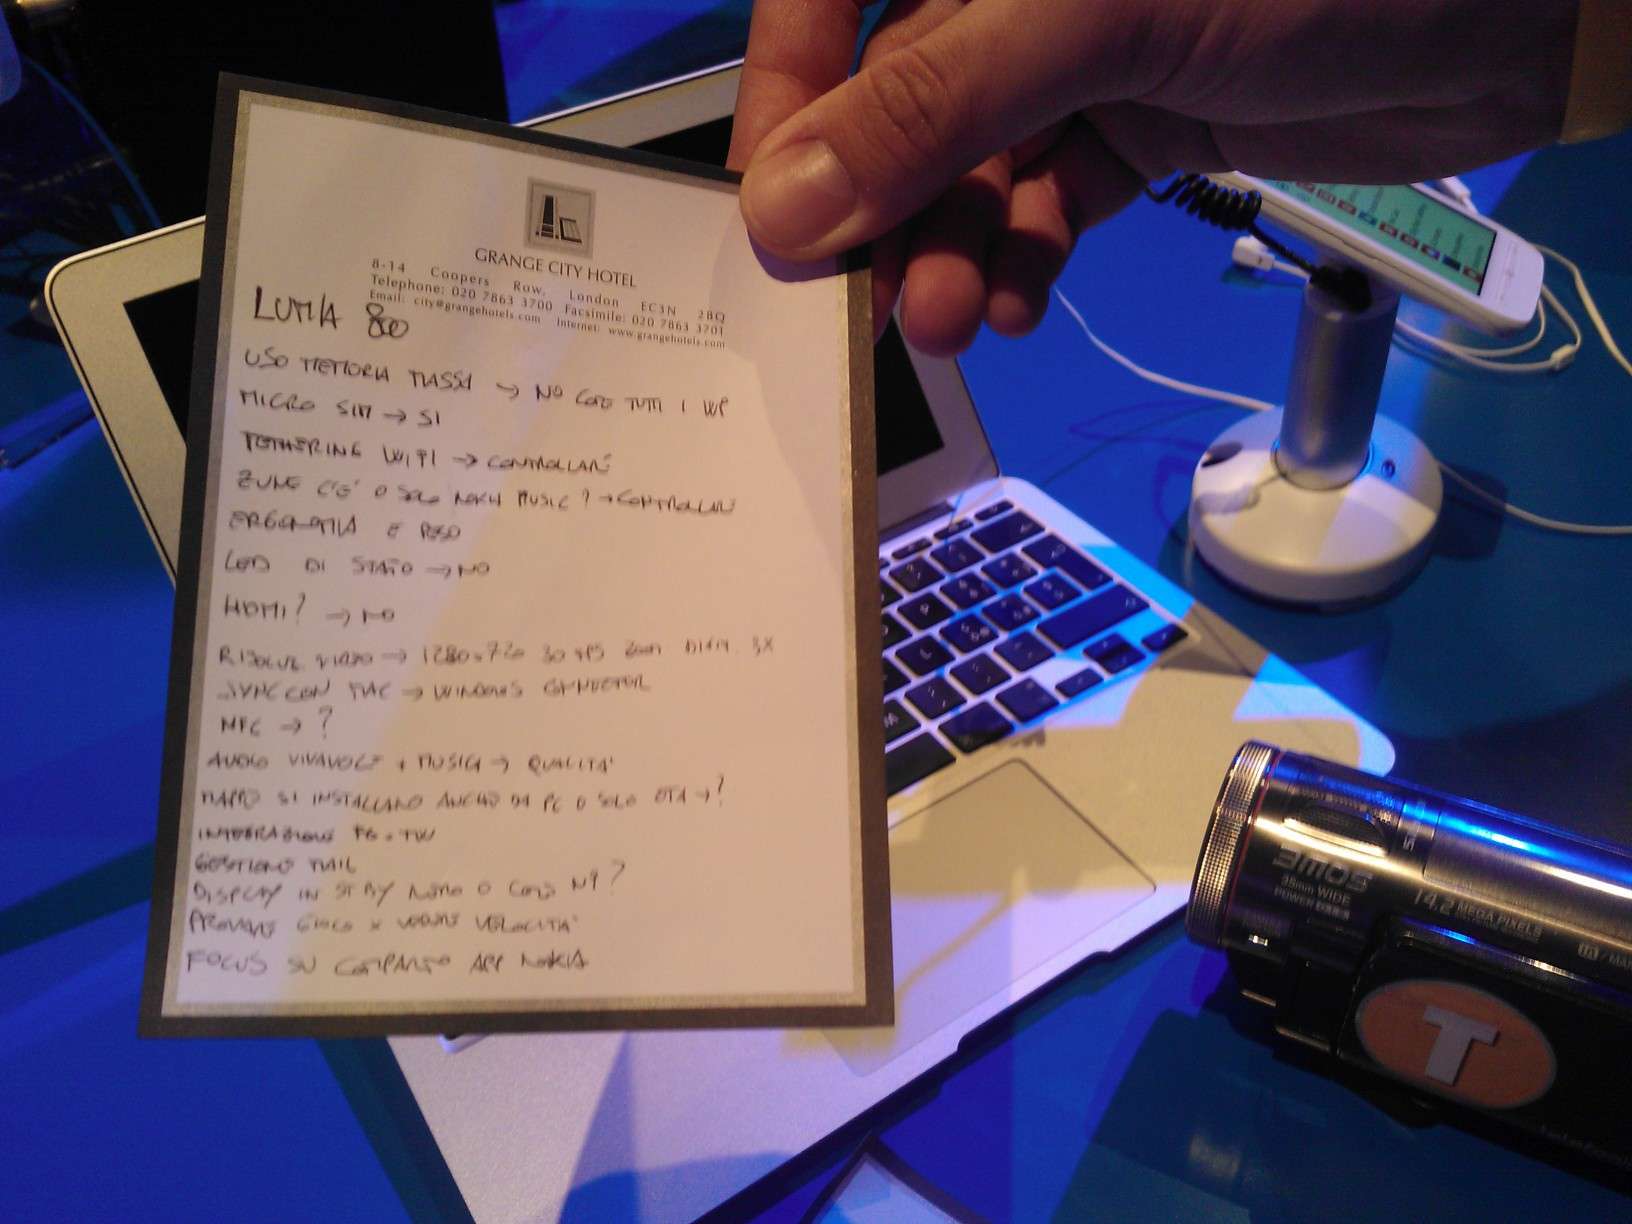 GRANGE CITY HOTEL
8-14 Coopers Row, London EC3N 2BQ
Telephone: 020 7863 3700 Facsimile: 020 7863 3701
Email: city@grangehotels.com Internet: www.grangehotels.com
LUMIA 800
USO MEMORIA MASSA → NO COME TUTTI I WP
MICRO SIM → SI
TETHERING WIFI → CONTROLLARE
ZUNE C'E' O SOLO NOKIA MUSIC? → CONTROLLARE
ERGONOMIA E PESO
LED DI STATO → NO
HDMI? → NO
RISOLUZ VIDEO → 1280x720 30 FPS ZOOM DIGIT. 3X
SYNC CON MAC → WINDOWS CONNECTOR
NFC → ?
AUDIO VIVAVOCE + MUSICA → QUALITA'
MAPPE SI INSTALLANO ANCHE DA PC O SOLO OTA → ?
INTEGRAZIONE FB + TW
GESTIONE MAIL
DISPLAY IN STBY NERO O COME N9?
PROVARE GIOCO X VEDERE VELOCITA'
FOCUS SU COMPARTO APP NOKIA
3MOS
35mm WIDE
POWER
14.2 MEGA PIXELS
T